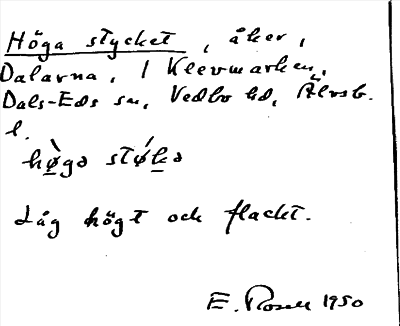 Höga stycket, åker,
Dalarna, i Klevmarken,
Dals-Eds sn, Vedbo hd, Älvsb.
l.
hø̀gə stǿkə
Låg högt och flackt.
E. Rosell 1950